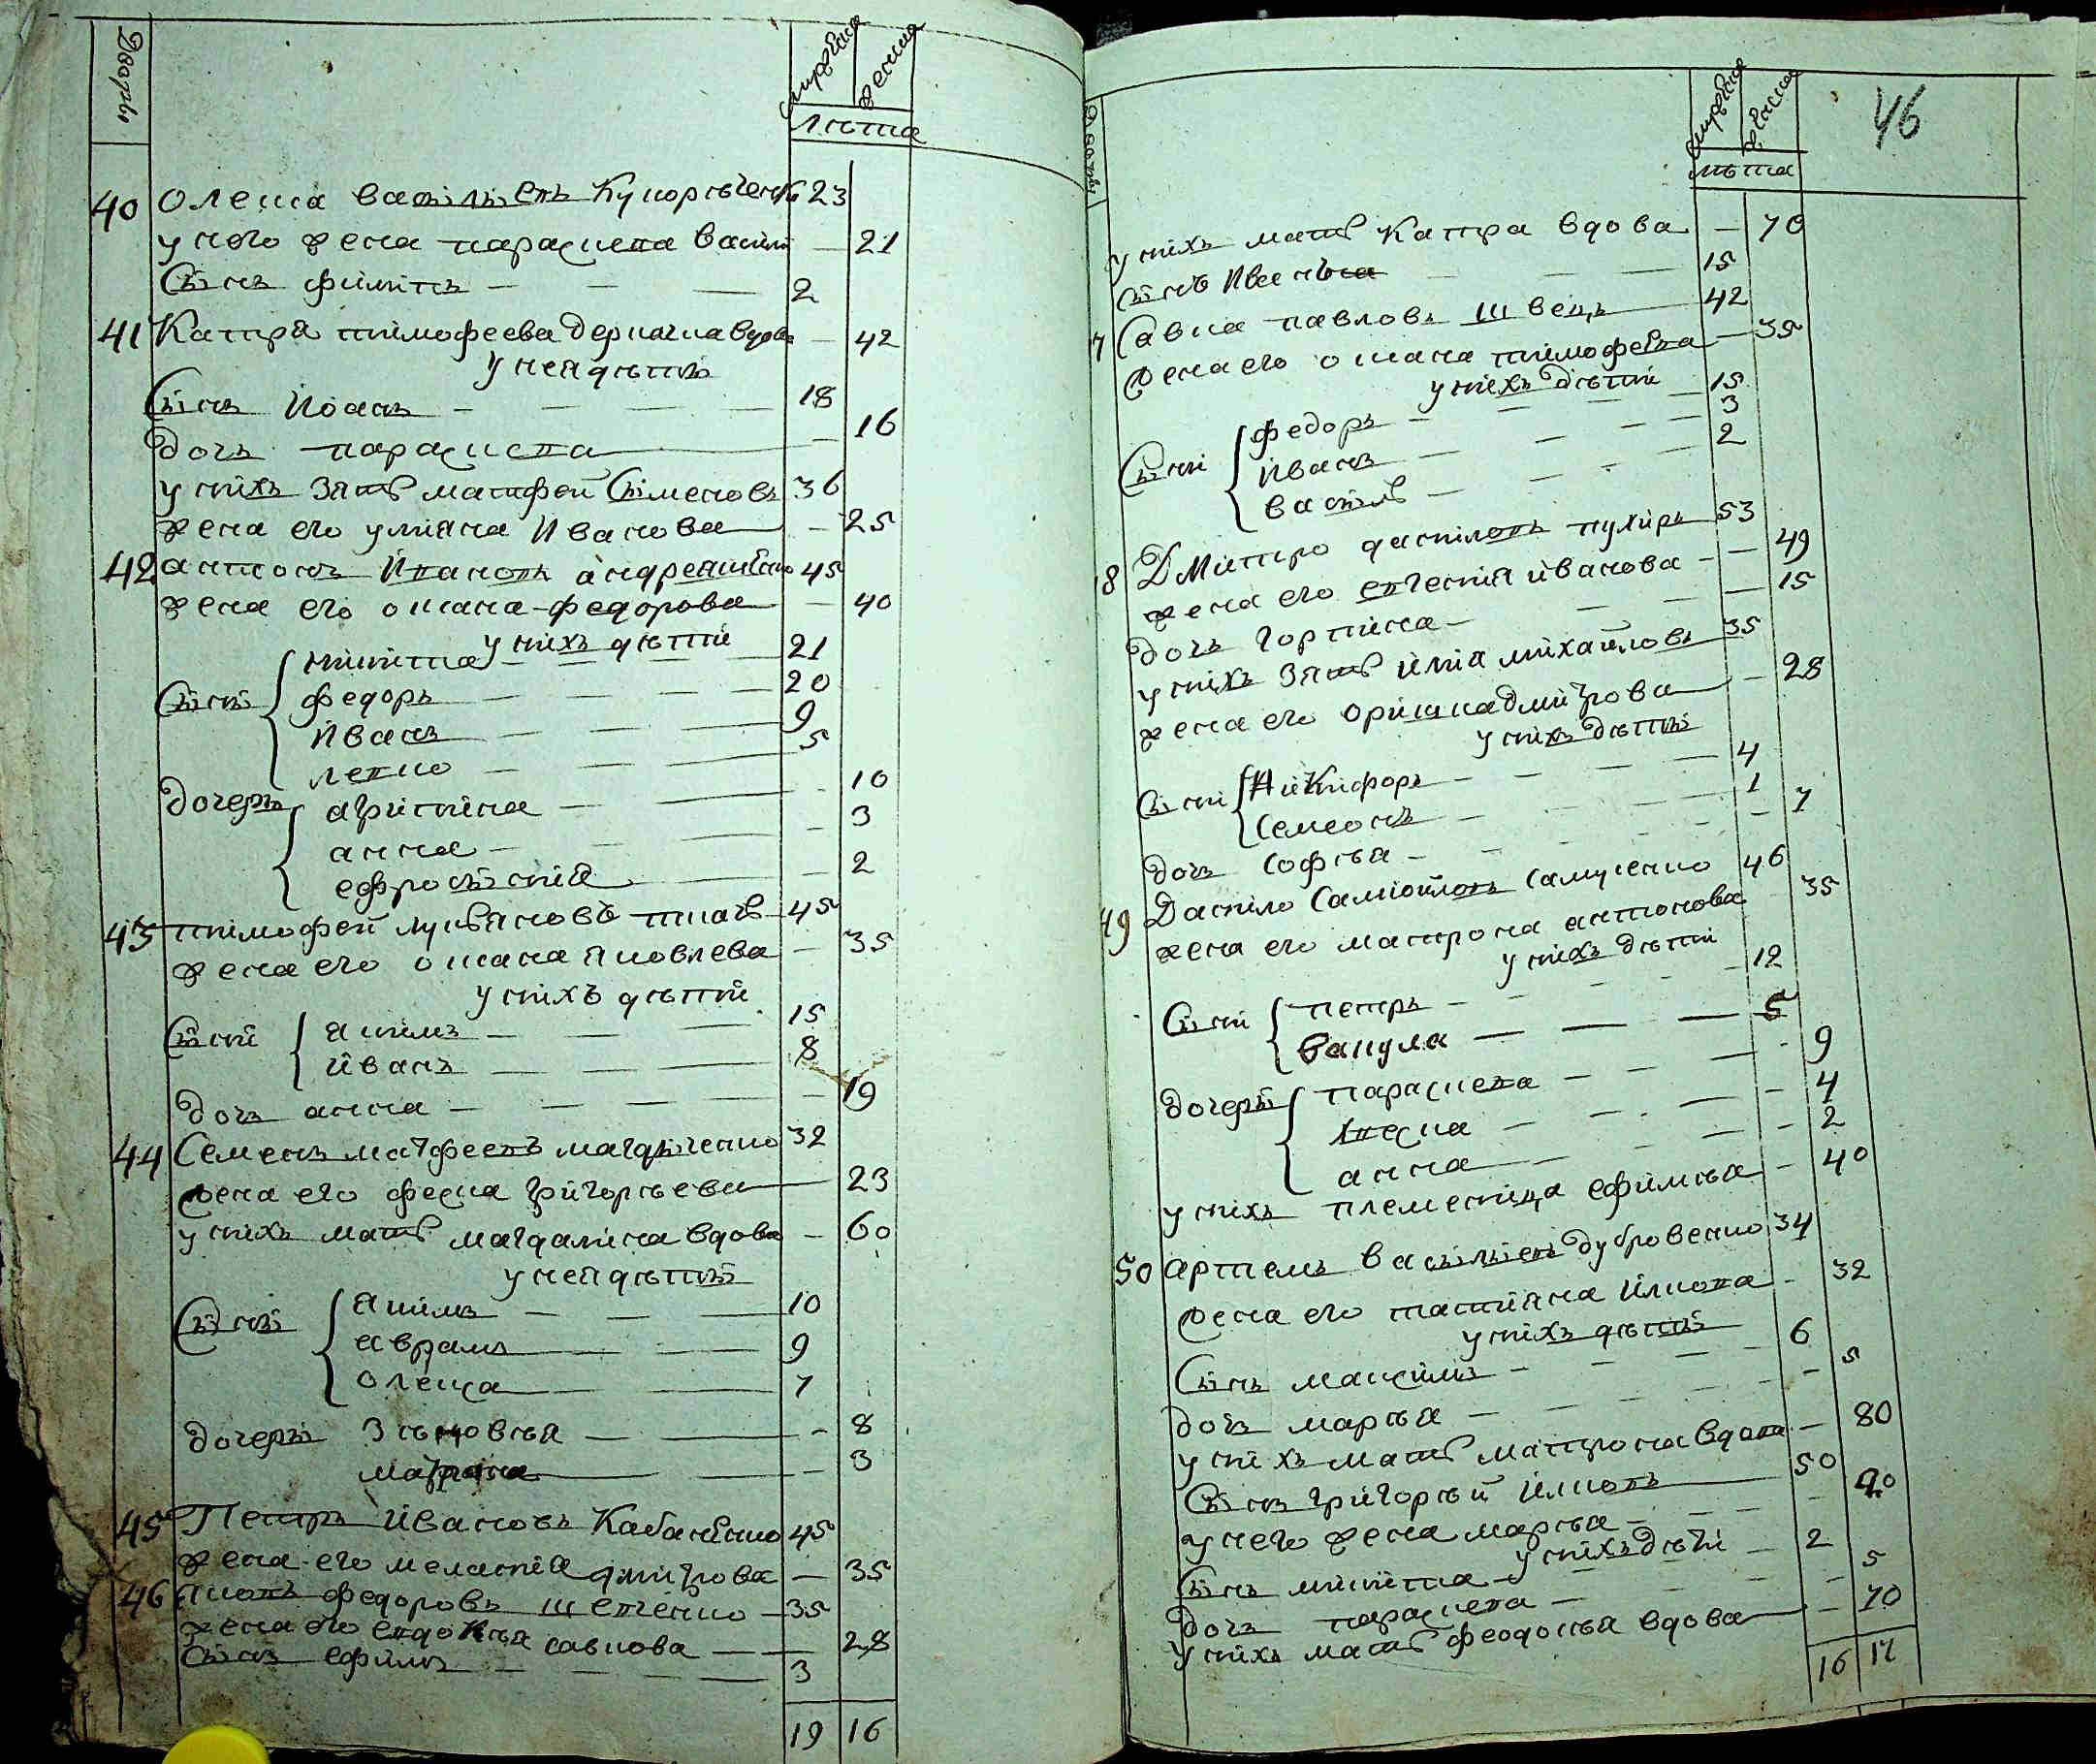 Дворы
мужеска
женска
лѣта
40 Олекса васильевъ Кухорѣченко 23
у него жена параскева васил — 21
Синъ филипъ — — — 2
41 Катря тимофеева деркачка вдова — 42
у нея дѣти
Синъ Иоанъ — — — — 18
дочь параскева — — 16
у нихъ зять матфей Сименовъ 36
жена его улияна Иванова — 25
42 антонъ Ивановъ андреященко 45
жена его оксана федорова — 40
у нихъ дѣти
Сини
никита — — — — 21
федоръ — — — — 20
Иванъ — — — 9
левко — — — 5
дочери
агрипина — — — 10
анна — — — 3
ефросиния — — 2
43 тимофей лукяновъ ткачъ 45
жена его оксана яковлева — 35
у нихъ дѣти
Сини
якимъ — — 15
иванъ — — — 8
дочь анна — — — — 19
44 Семенъ матфеевъ магдыченко 32
жена его феска григорьева — 23
у нихъ мать магдалина вдова — 60
у нея дѣти
Сини
якимъ — — — 10
аврамъ — — — 9
олекса — — 7
дочери
Зѣновья — — — 8
матрона — — 3
45 Петръ Ивановъ Кабаненко 45
жена его мелания дмитрова — 35
46 яковъ федоровъ шевченко — 35
жена его евдокья савкова — — 28
Синъ ефимъ — — — — 3
19 16
46
Дворы
мужеска
женска
лѣта
у нихъ мать Катря вдова — 70
Синъ Иванъ — — — 15
7 Савка павловъ швецъ 42
жена его оксана тимофева — 35
у нихъ дѣти
Сини
федоръ — — — — 15
Иванъ — — — — 3
василь — — — — 2
8 Дмитро даниловъ пухиръ 53
жена его евгения иванова — — 49
дочь горпина — — — — 15
у нихъ зять илия михайловъ 35
жена его оришка дмитрова — 28
у нихъ дѣти
Сини
Никифоръ — — — 4
Семеонъ — — — 1
дочь софья — — — — 7
49 Данило Самойловъ самусенко 46
жена его матрона антонова 35
у нихъ дѣти
Сини
петръ — — — — 12
вакула — — — 5
дочери
параскева — — — 9
хвеска — — — — 4
анна — — — — 2
у нихъ племеница ефимья — 40
50 артемъ васильевъ дубровенко 34
жена его татияна илкова — 32
у нихъ дѣти
Синъ максимъ — — — 6
дочь марья — — — — 5
у нихъ мать матрона вдова — 80
Синъ григорий илковъ 50
у него жена марья — — — 40
у нихъ дѣти
Синъ микита — — 2
дочь параскева — — — 5
у нихъ мать феодосья вдова — 70
16 17